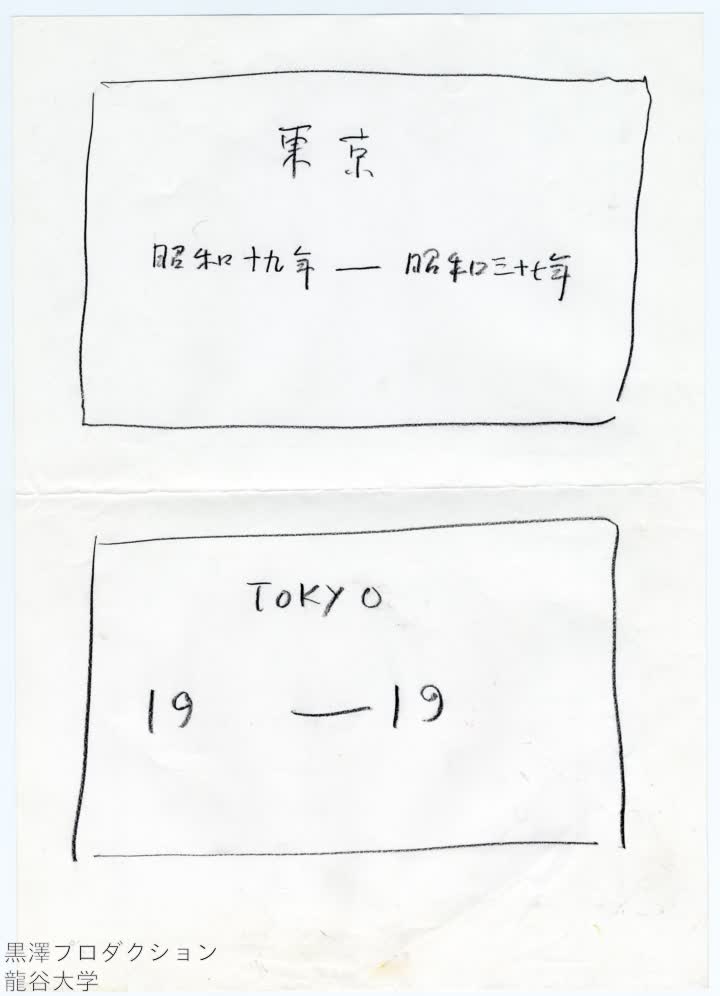 東京
昭和十九年 — 昭和三十七年
TOKYO
19 — 19
黒澤プロダクション
龍谷大学